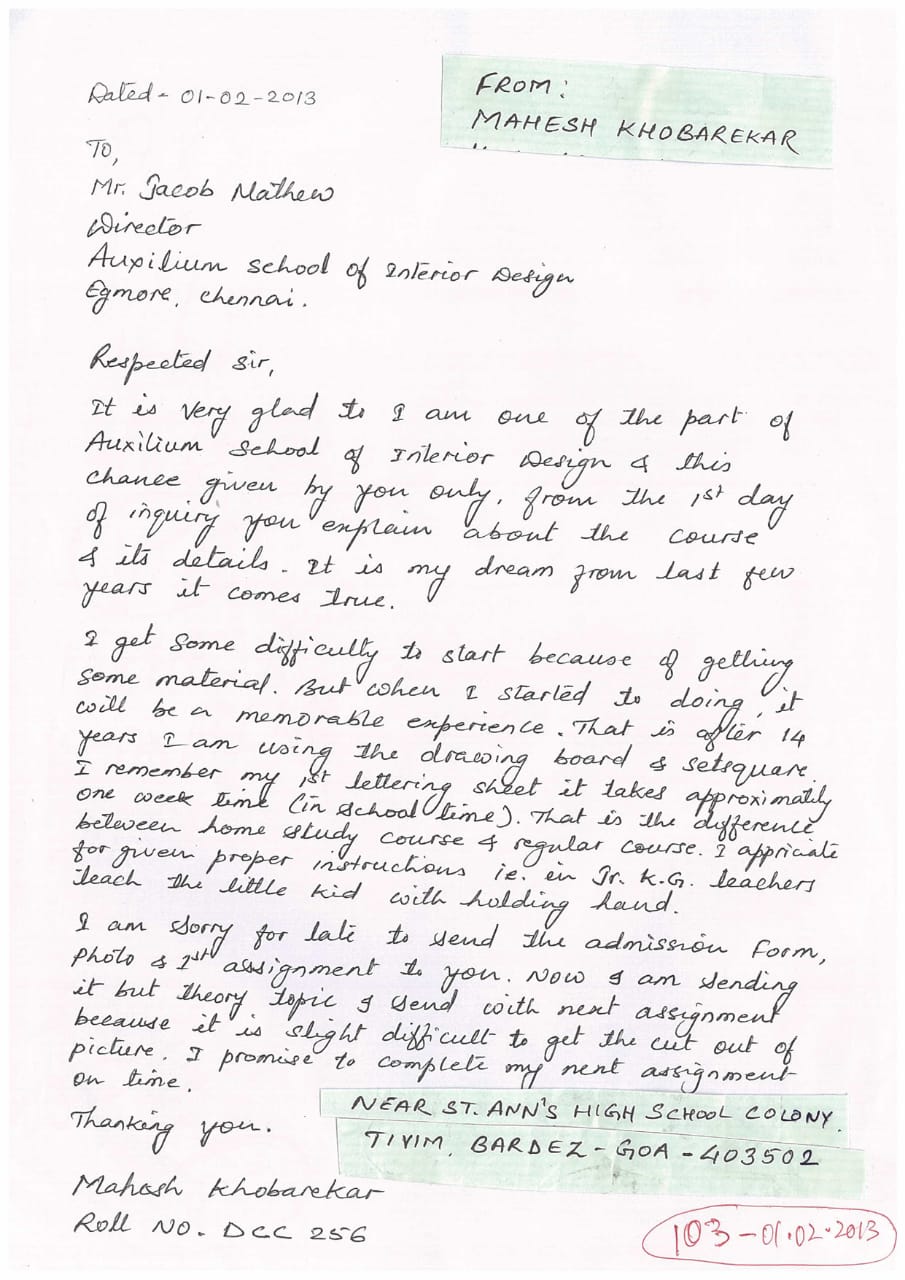 Dated - 01-02-2013
FROM:
MAHESH KHOBAREKAR
To,
Mr. Jacob Mathew
Director
Auxilium School of Interior Design
Egmore, Chennai.
Respected Sir,
It is very glad to I am one of the part of
Auxilium School of Interior Design & this
chance given by you only. from the 1st day
of inquiry you explain about the course
& its details. It is my dream from last few
years it comes true.
I get some difficulty to start because of getting
some material. But when I started to doing, it
will be a memorable experience. That is after 14
years I am using the drawing board & setsquare.
I remember my 1st lettering sheet it takes approximately
one week time (in school time). That is the difference
between home study course & regular course. I appriciate
for given proper instructions ie. in Jr. K.G. teachers
teach the little kid with holding hand.
I am sorry for late to send the admission form,
photo & 1st assignment to you. Now I am sending
it but theory topic I send with next assignment
because it is slight difficult to get the cut out of
picture. I promise to complete my next assignment
on time.
Thanking you.
NEAR ST. ANN'S HIGH SCHOOL COLONY.
TIVIM, BARDEZ - GOA - 403502
Mahesh Khobarekar
Roll NO. DCC 256
103 - 01.02.2013